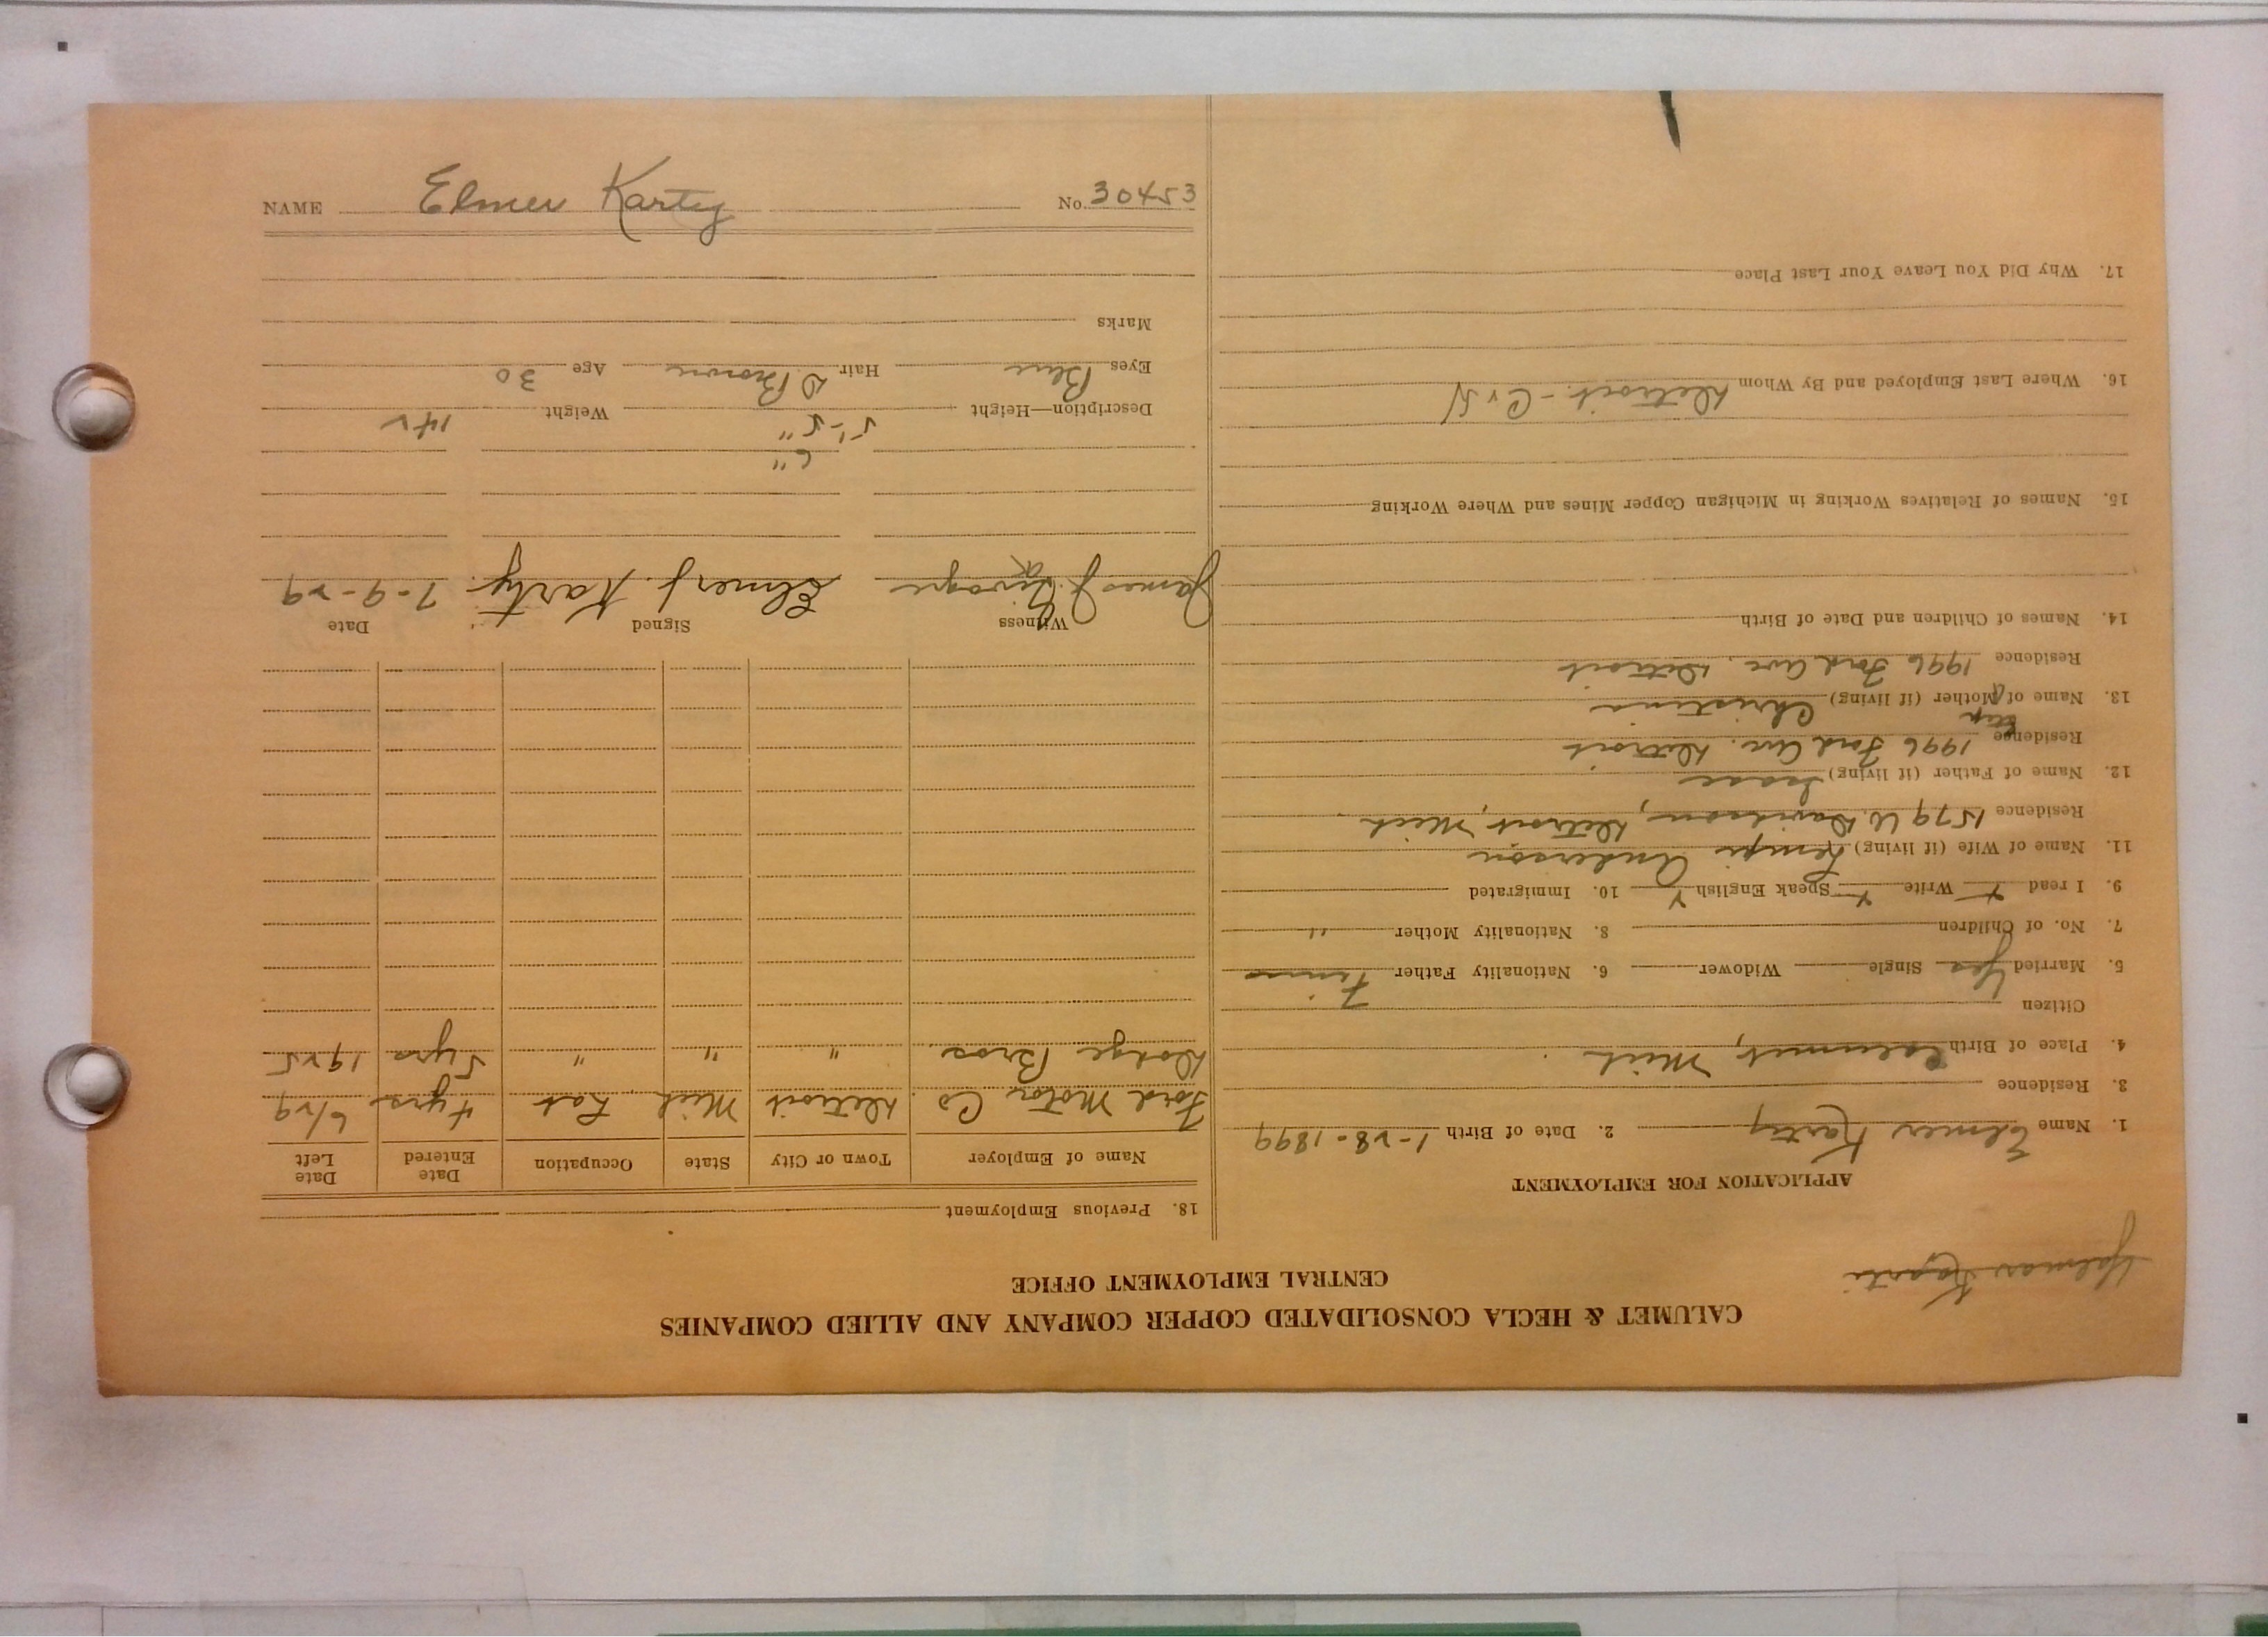 Hjalmar Kaarti
CALUMET & HECLA CONSOLIDATED COPPER COMPANY AND ALLIED COMPANIES
CENTRAL EMPLOYMENT OFFICE
APPLICATION FOR EMPLOYMENT
1. Name Elmer Karty 2. Date of Birth 1-28-1899
3. Residence
4. Place of Birth Calumet, Mich.
Citizen
5. Married Yes Single Widower 6. Nationality Father Finn
7. No. of Children 8. Nationality Mother "
9. I read Write Speak English 10. Immigrated
11. Name of Wife (if living) Lempi Anderson
Residence 1579 W. Davidson, Detroit, Mich
12. Name of Father (if living) Isaac
Residence 1996 Ford Av. Detroit
13. Name of Mother (if living) Christina
Residence 1996 Ford Ave. Detroit
14. Names of Children and Date of Birth
15. Names of Relatives Working in Michigan Copper Mines and Where Working
16. Where Last Employed and By Whom Detroit - C & H
17. Why Did You Leave Your Last Place
18. Previous Employment
Name of Employer Town or City State Occupation Date Entered Date Left
Ford Motor Co. Detroit Mich Lab 4 yrs 6/29
Dodge Bros. " " " 5 yrs 1925
Witness Signed Date
James J. Elmer J. Karty. 7-9-29
6"
Description—Height 5'-5" Weight 142
Eyes Blue Hair D Brown Age 30
Marks
NAME Elmer Karty No. 30453